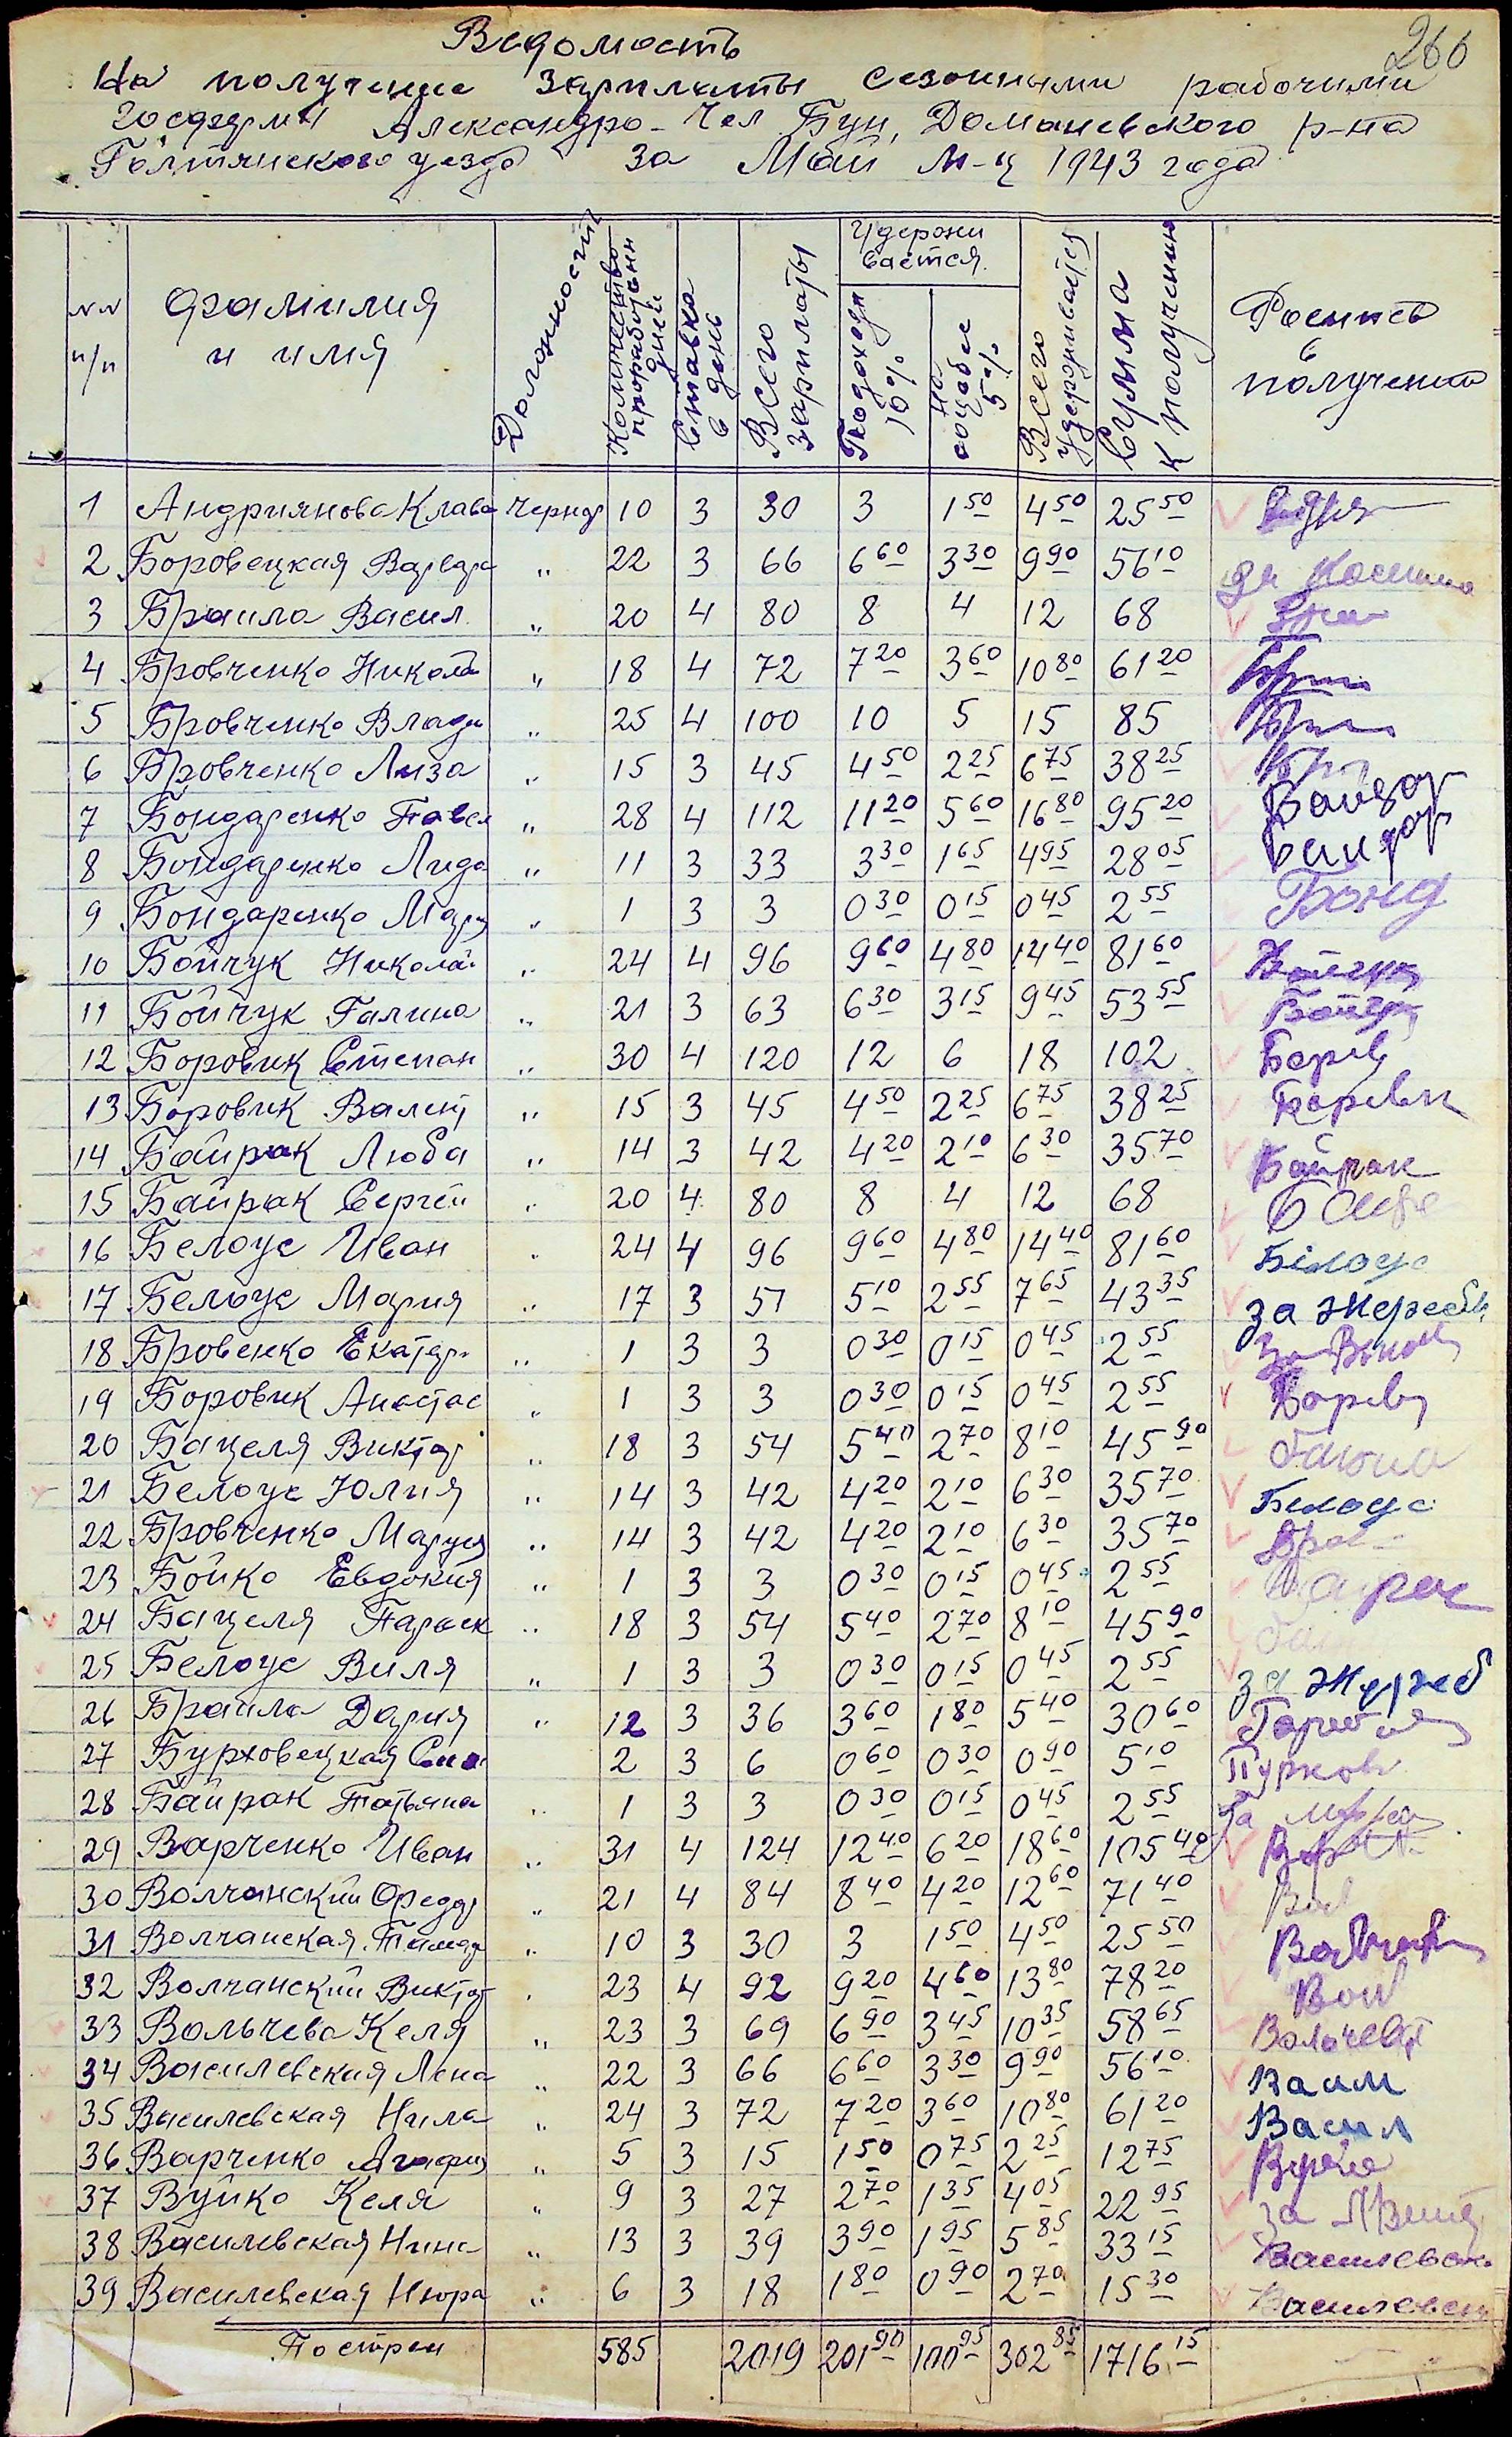 266
Ведомость
На получение зарплаты сезонными рабочими
Госфермы Александро-Чел Бун, Доманевского р-на
Голтянского уезда за Май м-ц 1943 года
№№ п/п | фамилия и имя | Должность | Количество проработанн дней | Ставка в день | Всего зарплаты | Удержи вается | Подоходн 10% | 5% | Всего удерживается | Сумма к получению | Роспись в получении
1 Андриянова Клава Чернор 10 3 30 3 1 50 4 50 25 50
2 Боровецкая Варвара " 22 3 66 6 60 3 30 9 90 56 10
3 Браила Васил " 20 4 80 8 4 12 68
4 Бровченко Никола " 18 4 72 7 20 3 60 10 80 61 20
5 Бровченко Влади " 25 4 100 10 5 15 85
6 Бровченко Лиза " 15 3 45 4 50 2 25 6 75 38 25
7 Бондаренко Павел " 28 4 112 11 20 5 60 16 80 95 20
8 Бондаренко Лида " 11 3 33 3 30 1 65 4 95 28 05
9 Бондаренко Мари " 1 3 3 0 30 0 15 0 45 2 55 Бонд
10 Бойчук Николай " 24 4 96 9 60 4 80 14 40 81 60
11 Бойчук Галина " 21 3 63 6 30 3 15 9 45 53 55
12 Боровик Степан " 30 4 120 12 6 18 102
13 Боровик Валент " 15 3 45 4 50 2 25 6 75 38 25
14 Байрак Люба " 14 3 42 4 20 2 10 6 30 35 70 Байрак
15 Байрак Сергей " 20 4 80 8 4 12 68
16 Белоус Иван " 24 4 96 9 60 4 80 14 40 81 60 Білоус
17 Белоус Мария " 17 3 51 5 10 2 55 7 65 43 35 за
18 Бровенко Екатер " 1 3 3 0 30 0 15 0 45 2 55 за
19 Боровик Анастас " 1 3 3 0 30 0 15 0 45 2 55
20 Бацеля Виктор " 18 3 54 5 40 2 70 8 10 45 90
21 Белоус Юлия " 14 3 42 4 20 2 10 6 30 35 70 Білоус
22 Бровченко Маруся " 14 3 42 4 20 2 10 6 30 35 70
23 Бойко Евдокия " 1 3 3 0 30 0 15 0 45 2 55
24 Бацеля Параск " 18 3 54 5 40 2 70 8 10 45 90
25 Белоус Виля " 1 3 3 0 30 0 15 0 45 2 55 за
26 Браила Дария " 12 3 36 3 60 1 80 5 40 30 60
27 Бурховецкая 2 3 6 0 60 0 30 0 90 5 10
28 Байрак Татьяна " 1 3 3 0 30 0 15 0 45 2 55 За
29 Варченко Иван " 31 4 124 12 40 6 20 18 60 105 40
30 Волчанский Федор " 21 4 84 8 40 4 20 12 60 71 40
31 Волчанская Тамар " 10 3 30 3 1 50 4 50 25 50
32 Волчанский Виктор " 23 4 92 9 20 4 60 13 80 78 20
33 Вольчева Келя " 23 3 69 6 90 3 45 10 35 58 65
34 Василевская Лена " 22 3 66 6 60 3 30 9 90 56 10
35 Василевская Нила " 24 3 72 7 20 3 60 10 80 61 20 Васил
36 Варченко Агафи " 5 3 15 1 50 0 75 2 25 12 75
37 Вуйко Келя " 9 3 27 2 70 1 35 4 05 22 95 за
38 Василевская Нина " 13 3 39 3 90 1 95 5 85 33 15
39 Василевская Нюра " 6 3 18 1 80 0 90 2 70 15 30
По стран 585 2019 201 90 100 95 302 85 1716 15